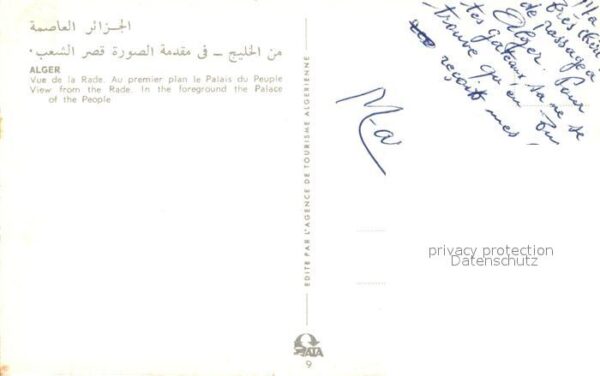 الجزائر العاصمة
من الخليج ـ فى مقدمة الصورة قصر الشعب.
ALGER
Vue de la Rade. Au premier plan le Palais du Peuple
View from the Rade. In the foreground the Palace
of the People
EDITE PAR L'AGENCE DE TOURISME ALGERIENNE
ATA
9
Ma
très chère
de passage à
Alger. Pour
tes gateaux, sa ne se
trouve qu'en
reçoit mes
M-a
privacy protection
Datenschutz